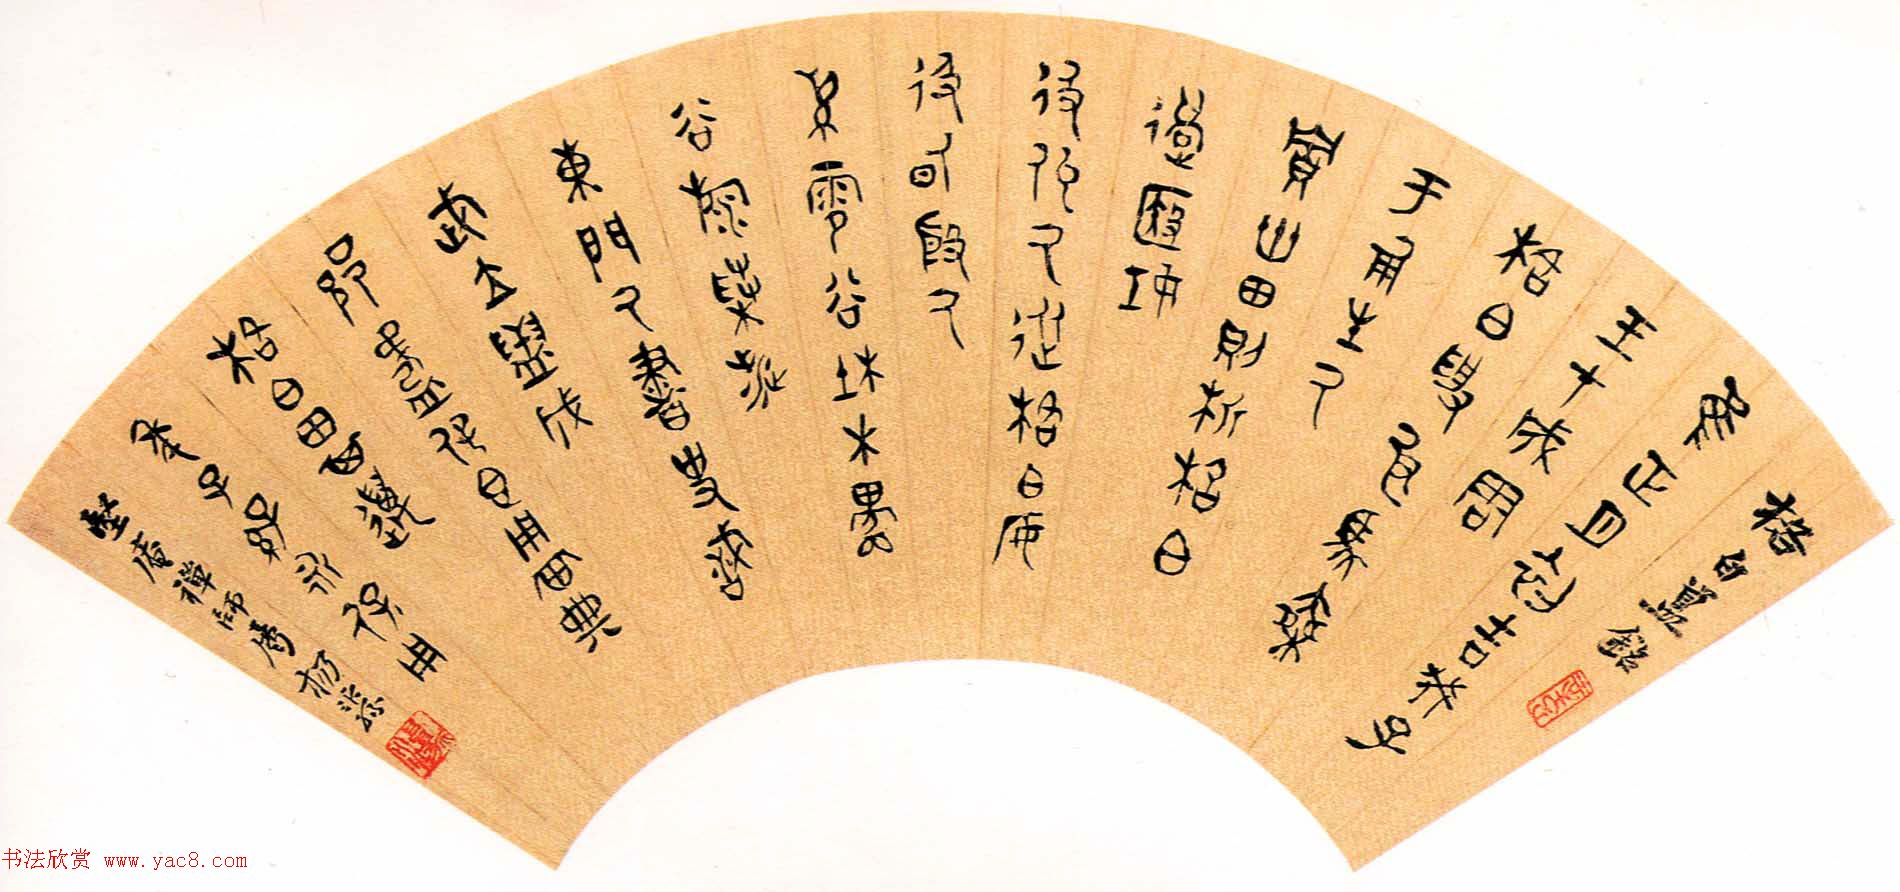 格白簋銘
隹正月初吉癸子
王才成周
格白取良馬乘
于倗生厥
貯卅田則析格白
殹妊
彶佤厥從格白安
彶甸殷厥
雩谷杜木
谷桑涉
東門厥書史戠
武立盟成
鑄保簋用典
格白田其邁
年子孫永保用
堅庵禪師屬 楊沂孫
书法欣赏 www.yac8.com